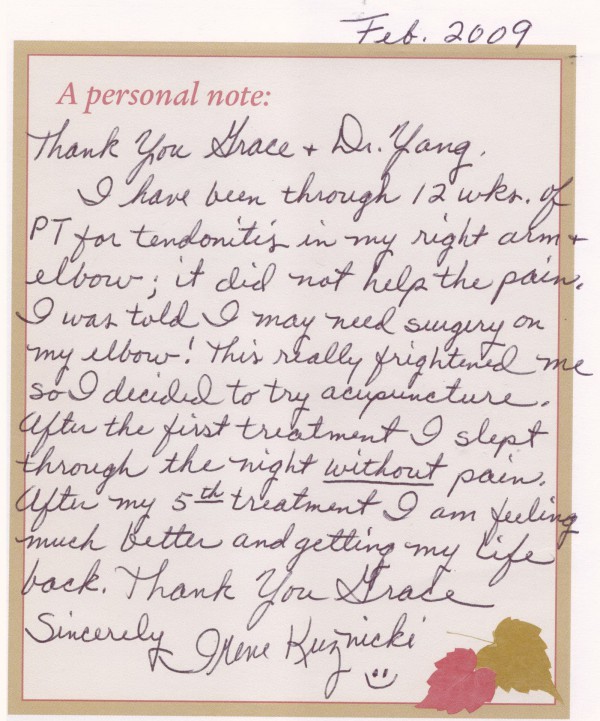 Feb. 2009
A personal note:
Thank You Grace + Dr. Yang.
I have been through 12 wks. of
PT for tendonitis in my right arm +
elbow; it did not help the pain.
I was told I may need surgery on
my elbow! This really frightened me
so I decided to try acupuncture.
After the first treatment I slept
through the night without pain.
After my 5th treatment I am feeling
much better and getting my life
back. Thank You Grace
Sincerely Irene Kuznicki